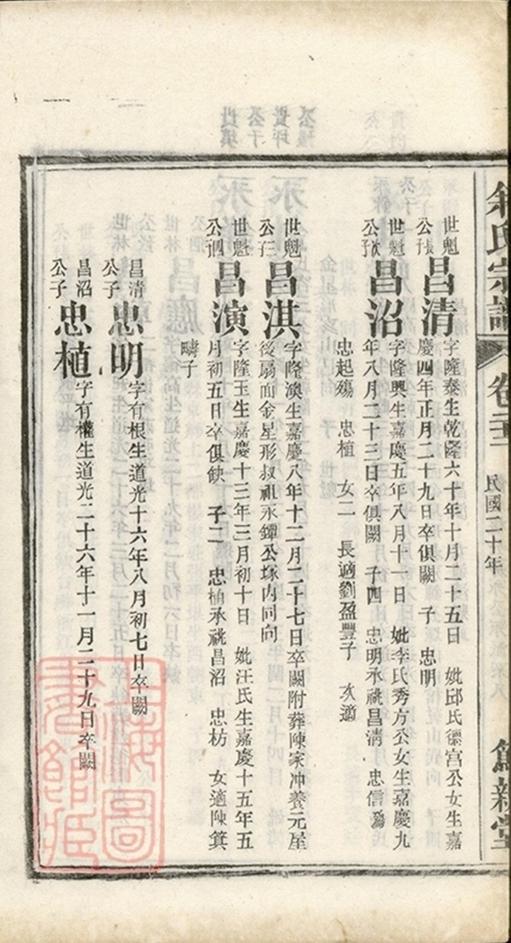 氏宗譜 卷
民國二十年
新堂
世魁
公子
昌清
字隆泰生乾隆六十年十月二十五日 妣邱氏德宫公女生嘉
慶四年正月二十九日卒俱闕 子 忠明
世魁
昌沼
字隆興生嘉慶五年八月十一日 妣李氏秀方公女生嘉慶九
年八月二十三日卒俱闕 子四 忠明承祧昌清 忠信殤
忠起殤 忠植 女二 長適劉盈豐子 次適
世魁
昌淇
字隆澳生嘉慶八年十二月二十七日卒闕附葬陳家冲養元屋
後扇面金星形叔祖永鐔公塚内同向
世魁
昌演
字隆玉生嘉慶十三年三月初十日 妣汪氏生嘉慶十五年五
月初五日卒俱缺 子二 忠植承祧昌沼 忠枋 女適陳箕
疇子
昌清
公子
忠明
字有根生道光十六年八月初七日卒闕
昌沼
公子
忠植
字有權生道光二十六年十一月二十九日卒闕